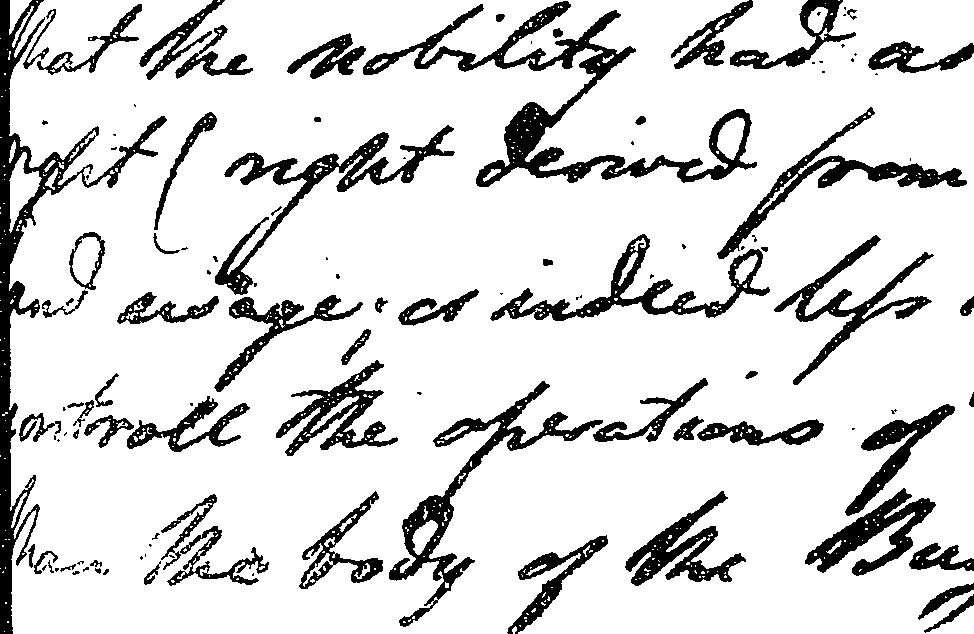 that the nobility had as
right (right derived from
and usage; is indeed less
controll the operations of
than the body of the Bur